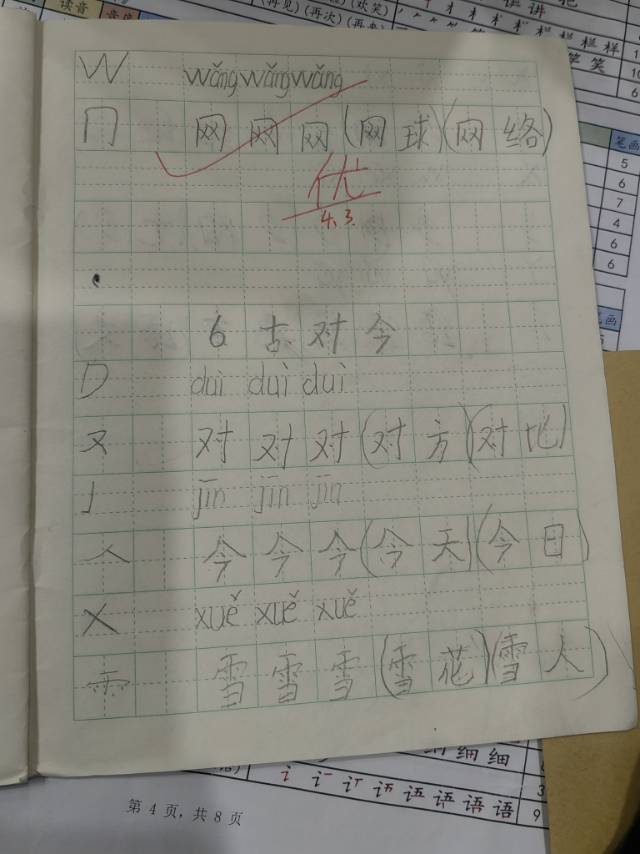 读音
(再见)(再次)
(欢笑)
W wǎng wǎng wǎng
冂 网 网 网 (网 球)(网 络)
优
4.3
笔画
5
6
7
4
6
6
6 古 对 今
D duì duì duì
又 对 对 对 (对 方)(对 比)
J jīn jīn jīn
人 今 今 今 (今 天)(今 日)
X xuě xuě xuě
雨 雪 雪 雪 (雪 花)(雪 人)
细 细
语 语 语 语 9
第 4 页，共 8 页